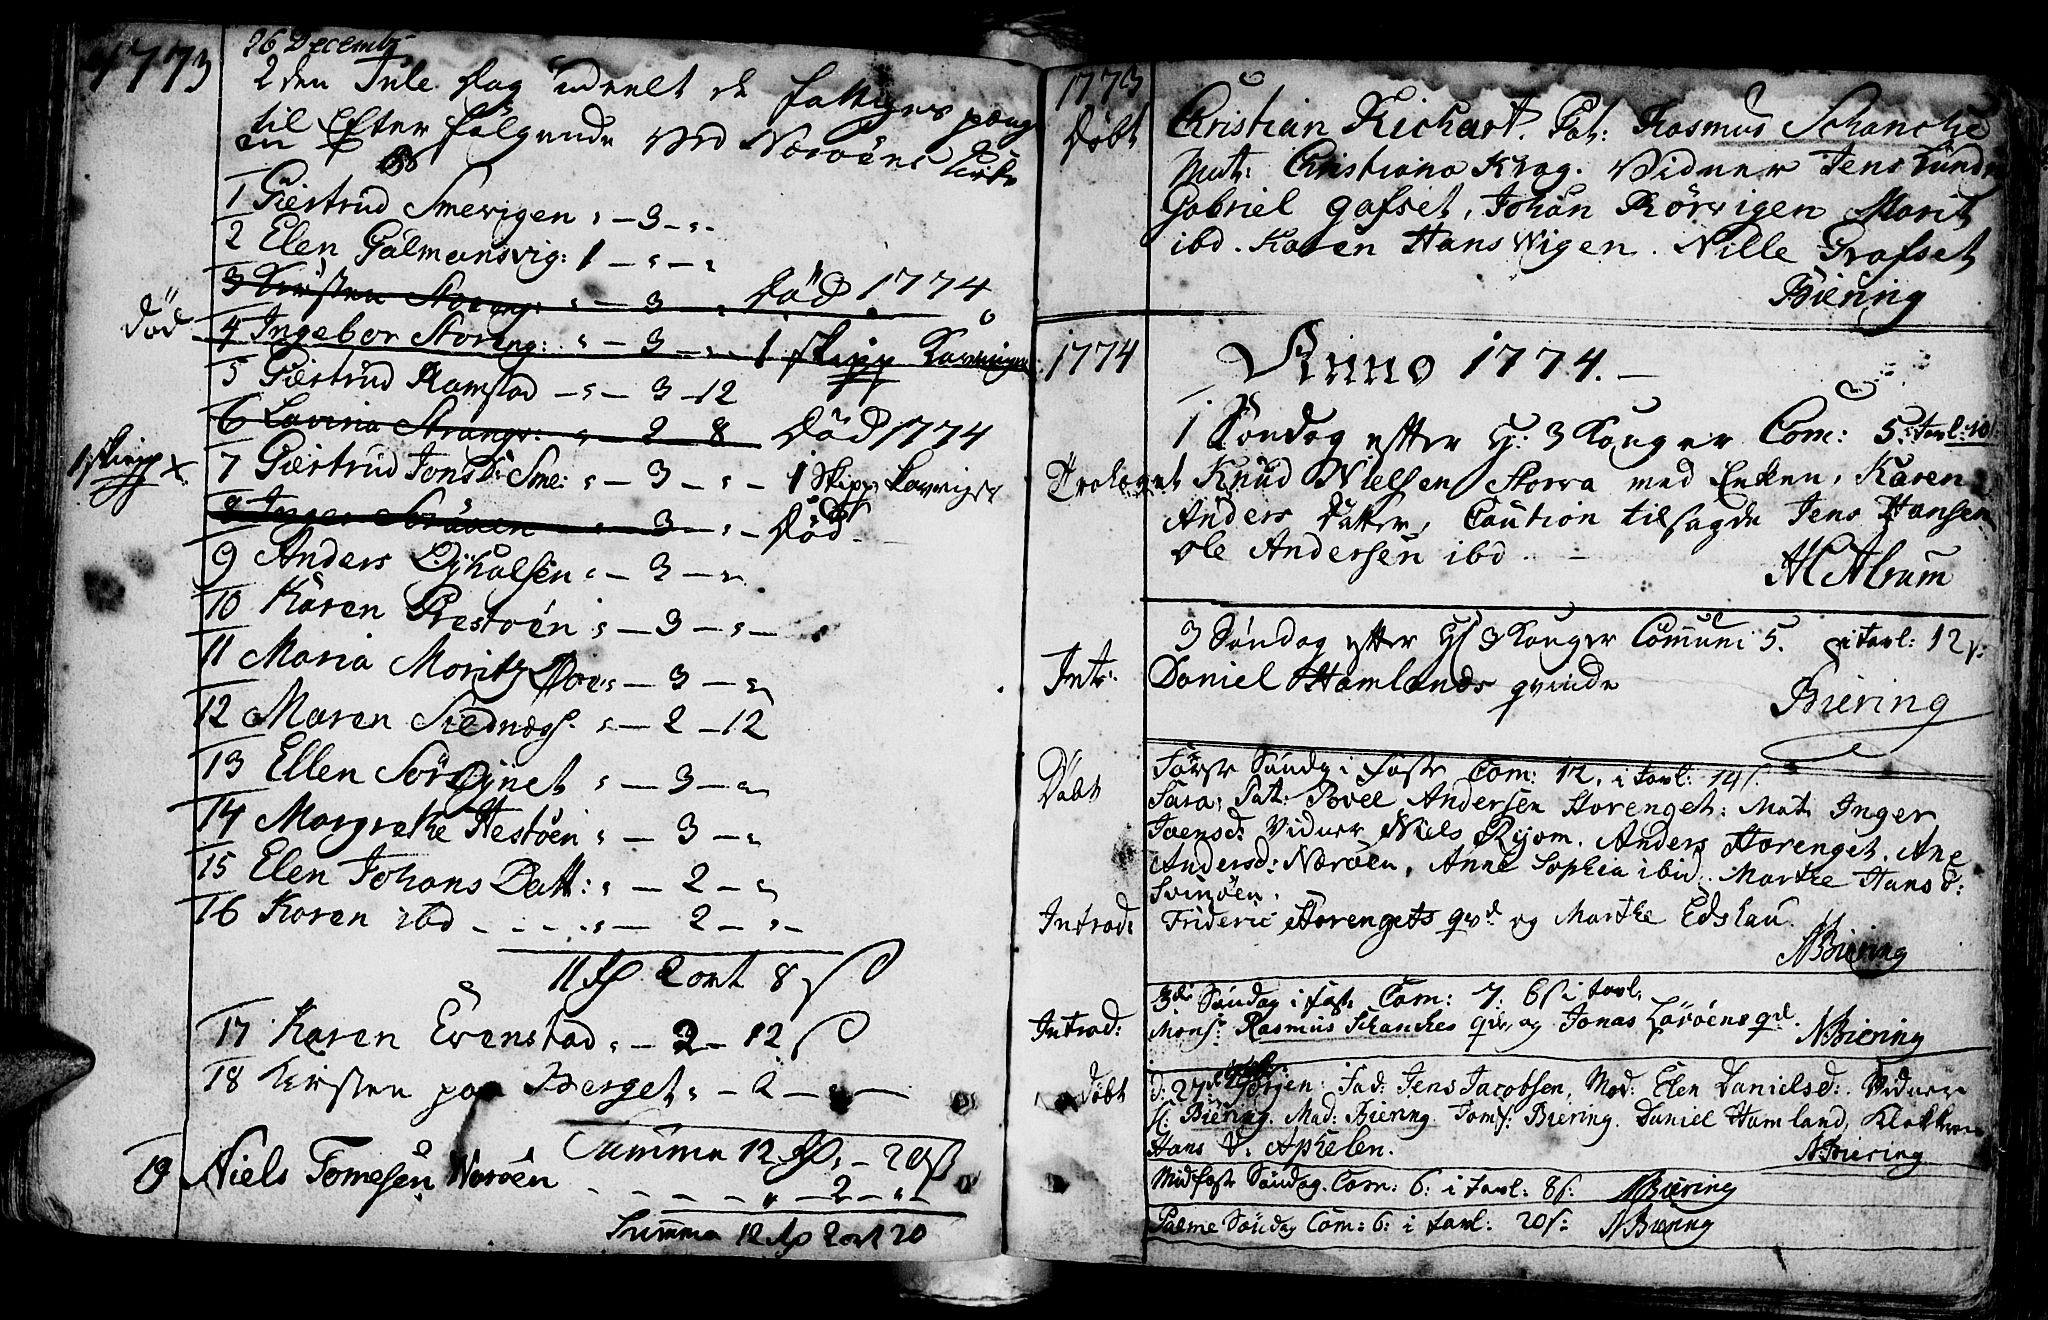 1773
26 Decembr
2den Jule Dag udeelt de fattiges penge
til Efter følgende ved Nærøens Kirke
1 Giertrud Smevigen " — 3 — "
2 Elen Galmansvig: 1 — " — "
3 Kirsten Storeng: " — 3 " død 1774
død 4 Ingebor Storeng: " — 3 — " — 1 skipp Kavringer
5 Giertrud Ramstad — " — 3 — 12
6 Lavina Strangs: " — 2 — 8 død 1774
1 skipp x 7 Giertrud Jons D: Sme: " — 3 — " — 1 Skipp: Kavriger
8 Inger — 3 — " — død
9 Anders " — 3 — "
10 Karen Prestøen " — 3 — " —
11 Maria Moritz — 3 — "
12 Maren Siednægs: " — 2 — 12
13 Ellen Sør Gjnet " — 3 — "
14 Margrethe Hestøen " — 3 — "
15 Elen Johans Datt: " — 2 — "
16 Karen ibd — " — 2 — " —
11 rd 2 ort 8 s
17 Karen Evenstad " — 2 — 12 s
18 Kirsten paa Berget " — 2 — —
Summa 12 rd " — 20 s
19 Niels Tomesen Nærøen — " — 2 — "
Summa 12 rd 2 ort 20
1773
Døbt Christian Richart. Pat: Rasmus Schancke
Mat: Christiana Krag. Vidner Jens
Gabriel Gafset, Johan Rörvigen Marit
ibd. Karen Hans Wigen. Nille Grafset
Biering
1774 Anno 1774. —
1 Søndag efter H: 3 Konger Com: 5: i tavl: 10
Trolovet Knud Nielsen Storra med Enken, Karen
Anders Datter, Caution tilsagde Jens Hansen
Ole Andersen ibd. —
3 Søndag efter H 3 Konger Communi 5. i tavl: 12 s:
Intr: Daniel Hamlands qvinde
Biering
Første Søndag i faste Com: 12. i tavl: 14 s.
Døbt Sara, Pat: Povel Andersen Storenget: Mat Inger
Joensd: Vidner Niels Ryom. Anders Storenget. Ane
Andersd: Nærøen, Anne Sophia ibid. Marthe Hans d:
Svinøen.
Introd: Frideric Storengets qvd og Marthe Edshau.
NBiering
3de Søndag i fast: Com: 7: 6 s i tavl.
Introd: Monsr Rasmus Schanckes qvd og Jonas Larøens qvd. NBiering
Døbt d: 27de Jørgen: Fad: Jens Jacobsen, Mod: Elen Danielsd: Vidner
Hr: Biering. Mad: Biering Jomf: Biering. Daniel Hamland, Klokkeren
Hans V: Aphelen. NBiering
Midfaste Søndag. Com: 6: i tavl: 8 s: NBiering
Palme Søndag Com: 6: i tavl: 20 s: NBiering